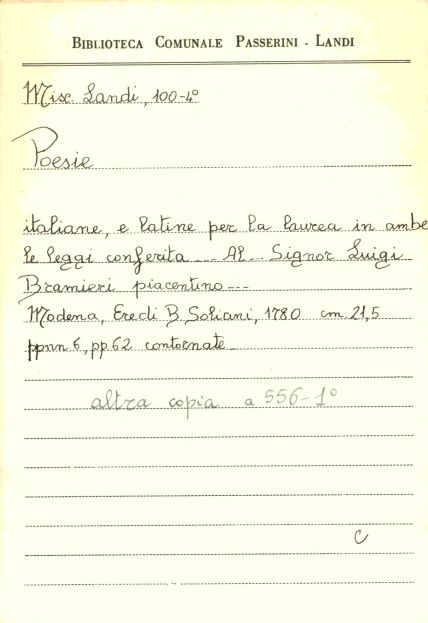 BIBLIOTECA COMUNALE PASSERINI - LANDI
Misc. Landi, 100-4°
Poesie
italiane, e latine per la laurea in ambe
le leggi conferita --- Al--- Signor Luigi
Bramieri piacentino---
Modena, Eredi B. Soliani, 1780 cm. 21,5
ppnn 6, pp. 62 contornate
altra copia a 556-1°
C